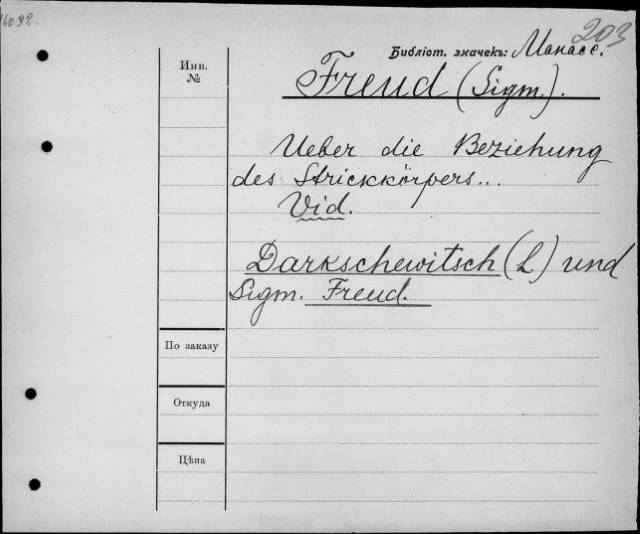 16092.
203
Библіот. значекъ: Манасе.
Инв.
№
Freud (Sigm.).
Ueber die Beziehung
des Strickkörpers...
Vid.
Darkschewitsch (L) und
Sigm. Freud.
По заказу
Откуда
Цѣна